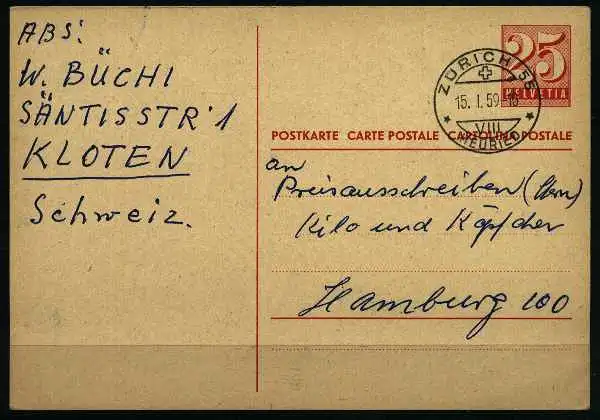 ABS:
W. BÜCHI
SÄNTISSTR. 1
KLOTEN
Schweiz.
25
HELVETIA
ZÜRICH 58
15. I. 59
VIII
(HEURIED)
POSTKARTE CARTE POSTALE CARTOLINA POSTALE
an
Preisausschreiben (Stern)
Kilo und Köpfchen
Hamburg 100